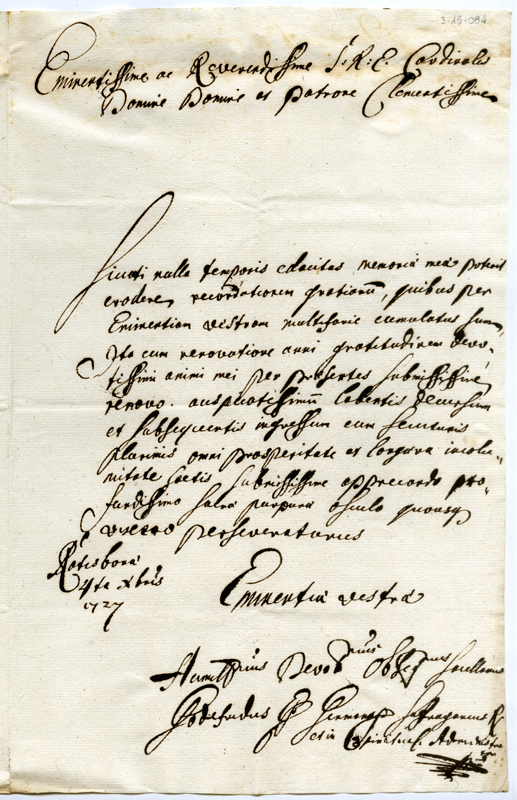 3-15-084
Eminentissime ac Reverendissime S: R: E: Cardinalis
Domine Domine et Patrone Clementissime
Sicuti nulla temporis edacitas memoria mea poterit
erodere, recordationem gratiarū, quibus per
Eminentiam vestram multifarie cumulatus sum,
Ita cum renovatione anni gratitudinem devo,,
tissimi animi mei per præsentes submississime
renovo. auspicatissimū labentis decursum
et subsequentis ingressum cum secuturis
plurimis omni prosperitate et longæva incolu,,
mitate lætis submississime apprecando pro,,
fundissimo sacræ purpuræ osculo quousq
vixero perseveraturus
Ratisbonæ
4ta Xbris
1727
Eminentiæ vestræ
Humillimus Devotmus Obseqmus
Godefridus Suffraganeus
et in Spiritual. Administra